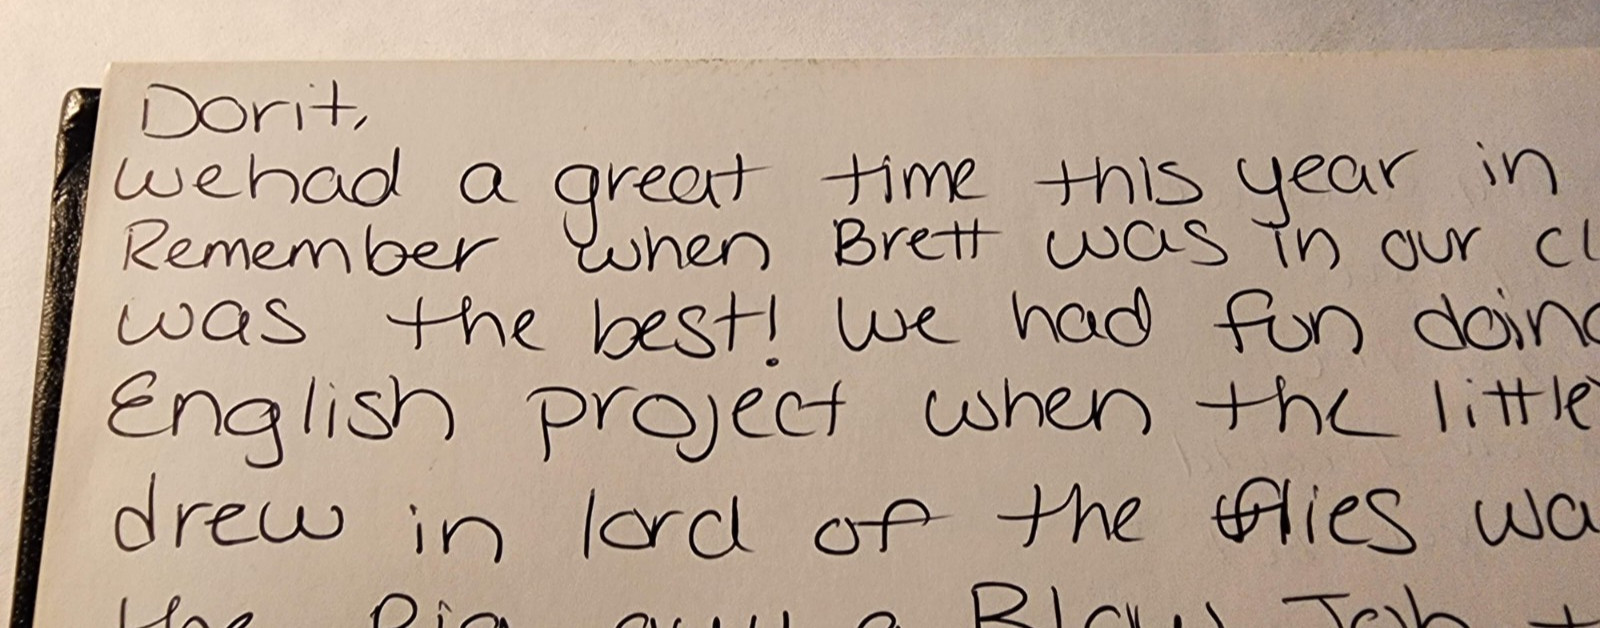 Dorit,
we had a great time this year in
Remember when Brett was in our cl
was the best! We had fun doing
English project when the little
drew in lord of the flies wa
the Pig guy a Blow Job t